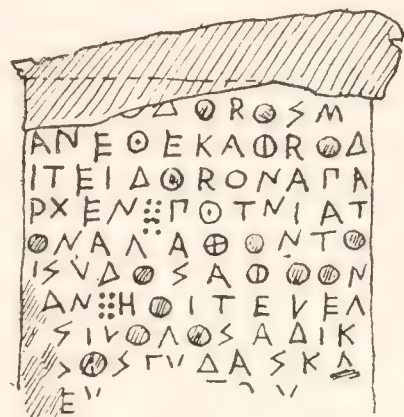 ΟΔΟRΟSΜ
ΑΝΕΘΕΚΑΦRΟΔ
ΙΤΕΙΔΟRΟΝΑΠΑ
ΡΧΕΝ⁝ΠΟΤΝΙΑΤ
ΟΝΑΛΑΘΟΝΤΟ
ΙSVΔΟSΑΦΘΟΝ
ΑΝ⁝ΗΟΙΤΕVΕΛ
SΙVΟΛΟSΑΔΙΚ
ΟSΓVΔΑSΚΑ
ΕV